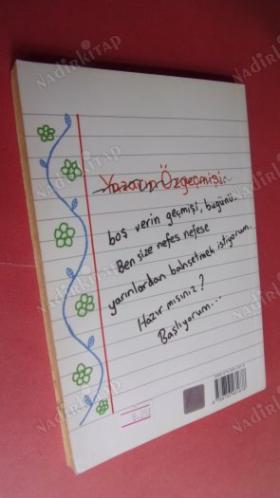 Yazarın Özgeçmişi:
boş verin geçmişi, bugünü.
Ben size nefes nefese
yarınlardan bahsetmek istiyorum.
Hazır mısınız?
Başlıyorum...
NadirKitap